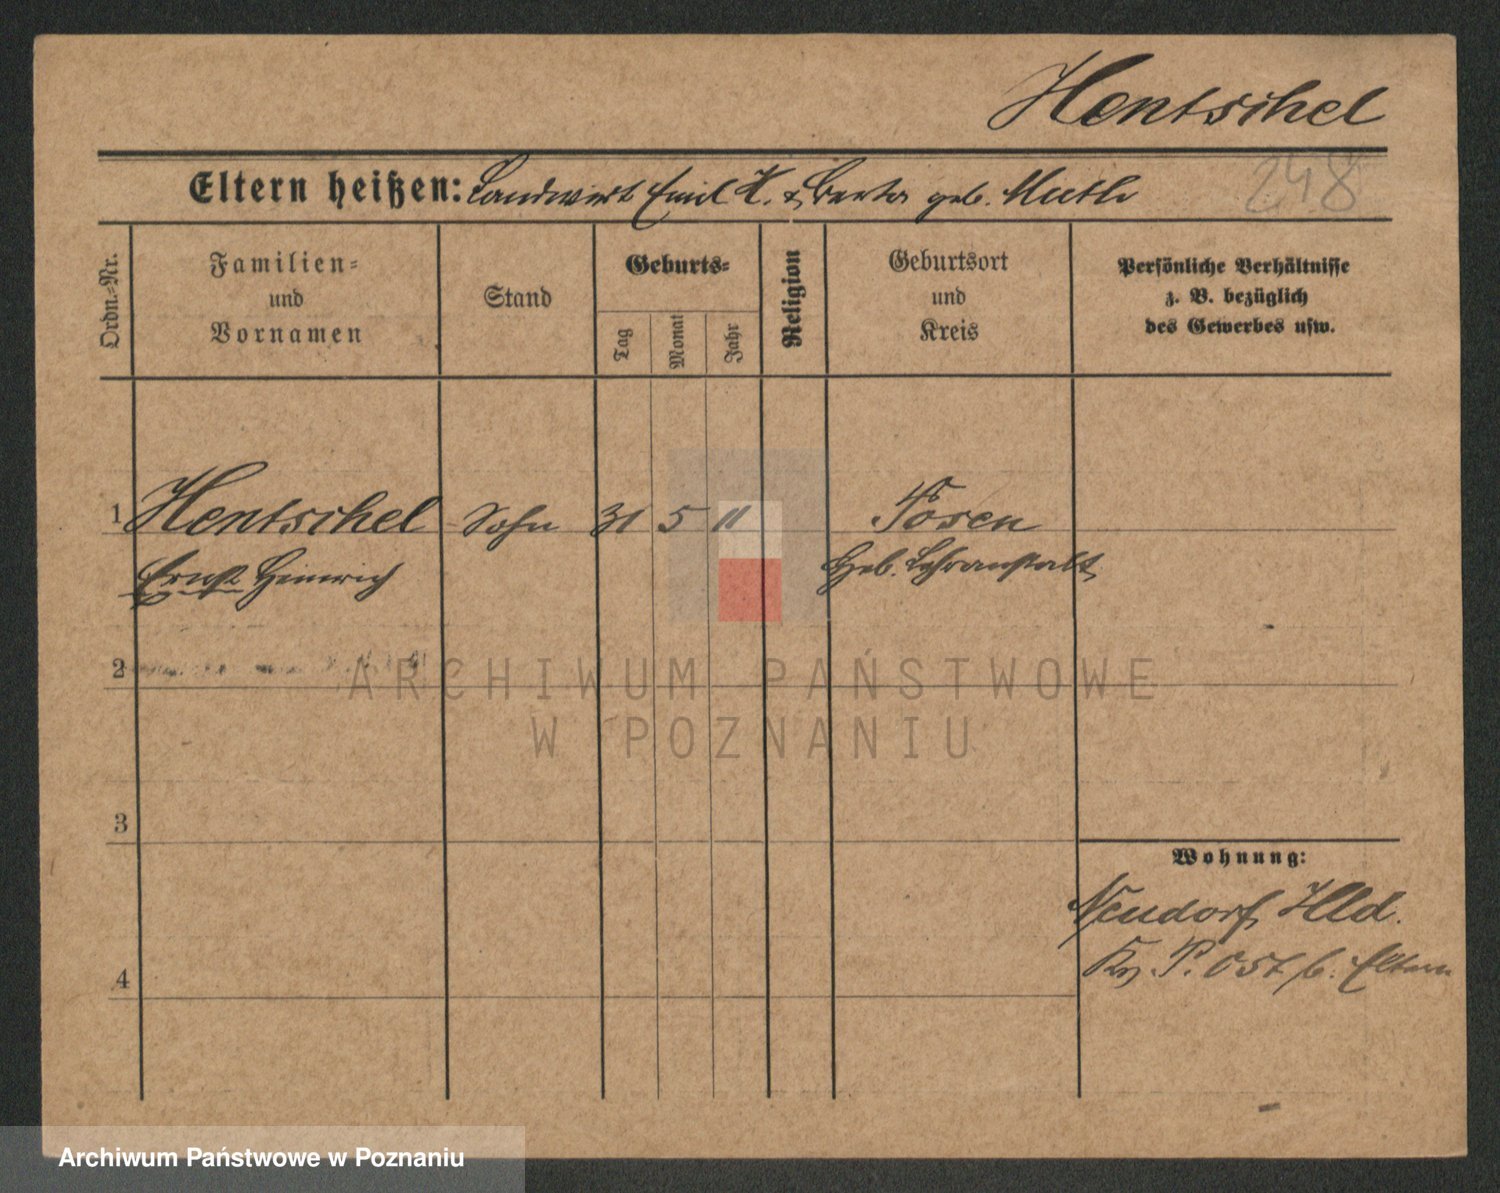 Hentschel
Eltern heißen: Landwirt Emil H. & Berta geb. Muthe
248
Ordn.-Nr.
Familien-
und
Vornamen
Stand
Geburts-
Tag
Monat
Jahr
Religion
Geburtsort
und
Kreis
Persönliche Verhältnisse
z. B. bezüglich
des Gewerbes usw.
1 Hentschel Sohn 31 5 11 Posen
Ernst Heinrich Heb. Lehranstalt
2
ARCHIWUM PAŃSTWOWE
W POZNANIU
3
Wohnung:
Neudorf Hld.
4
Kr. P. Ost b. Eltern
Archiwum Państwowe w Poznaniu